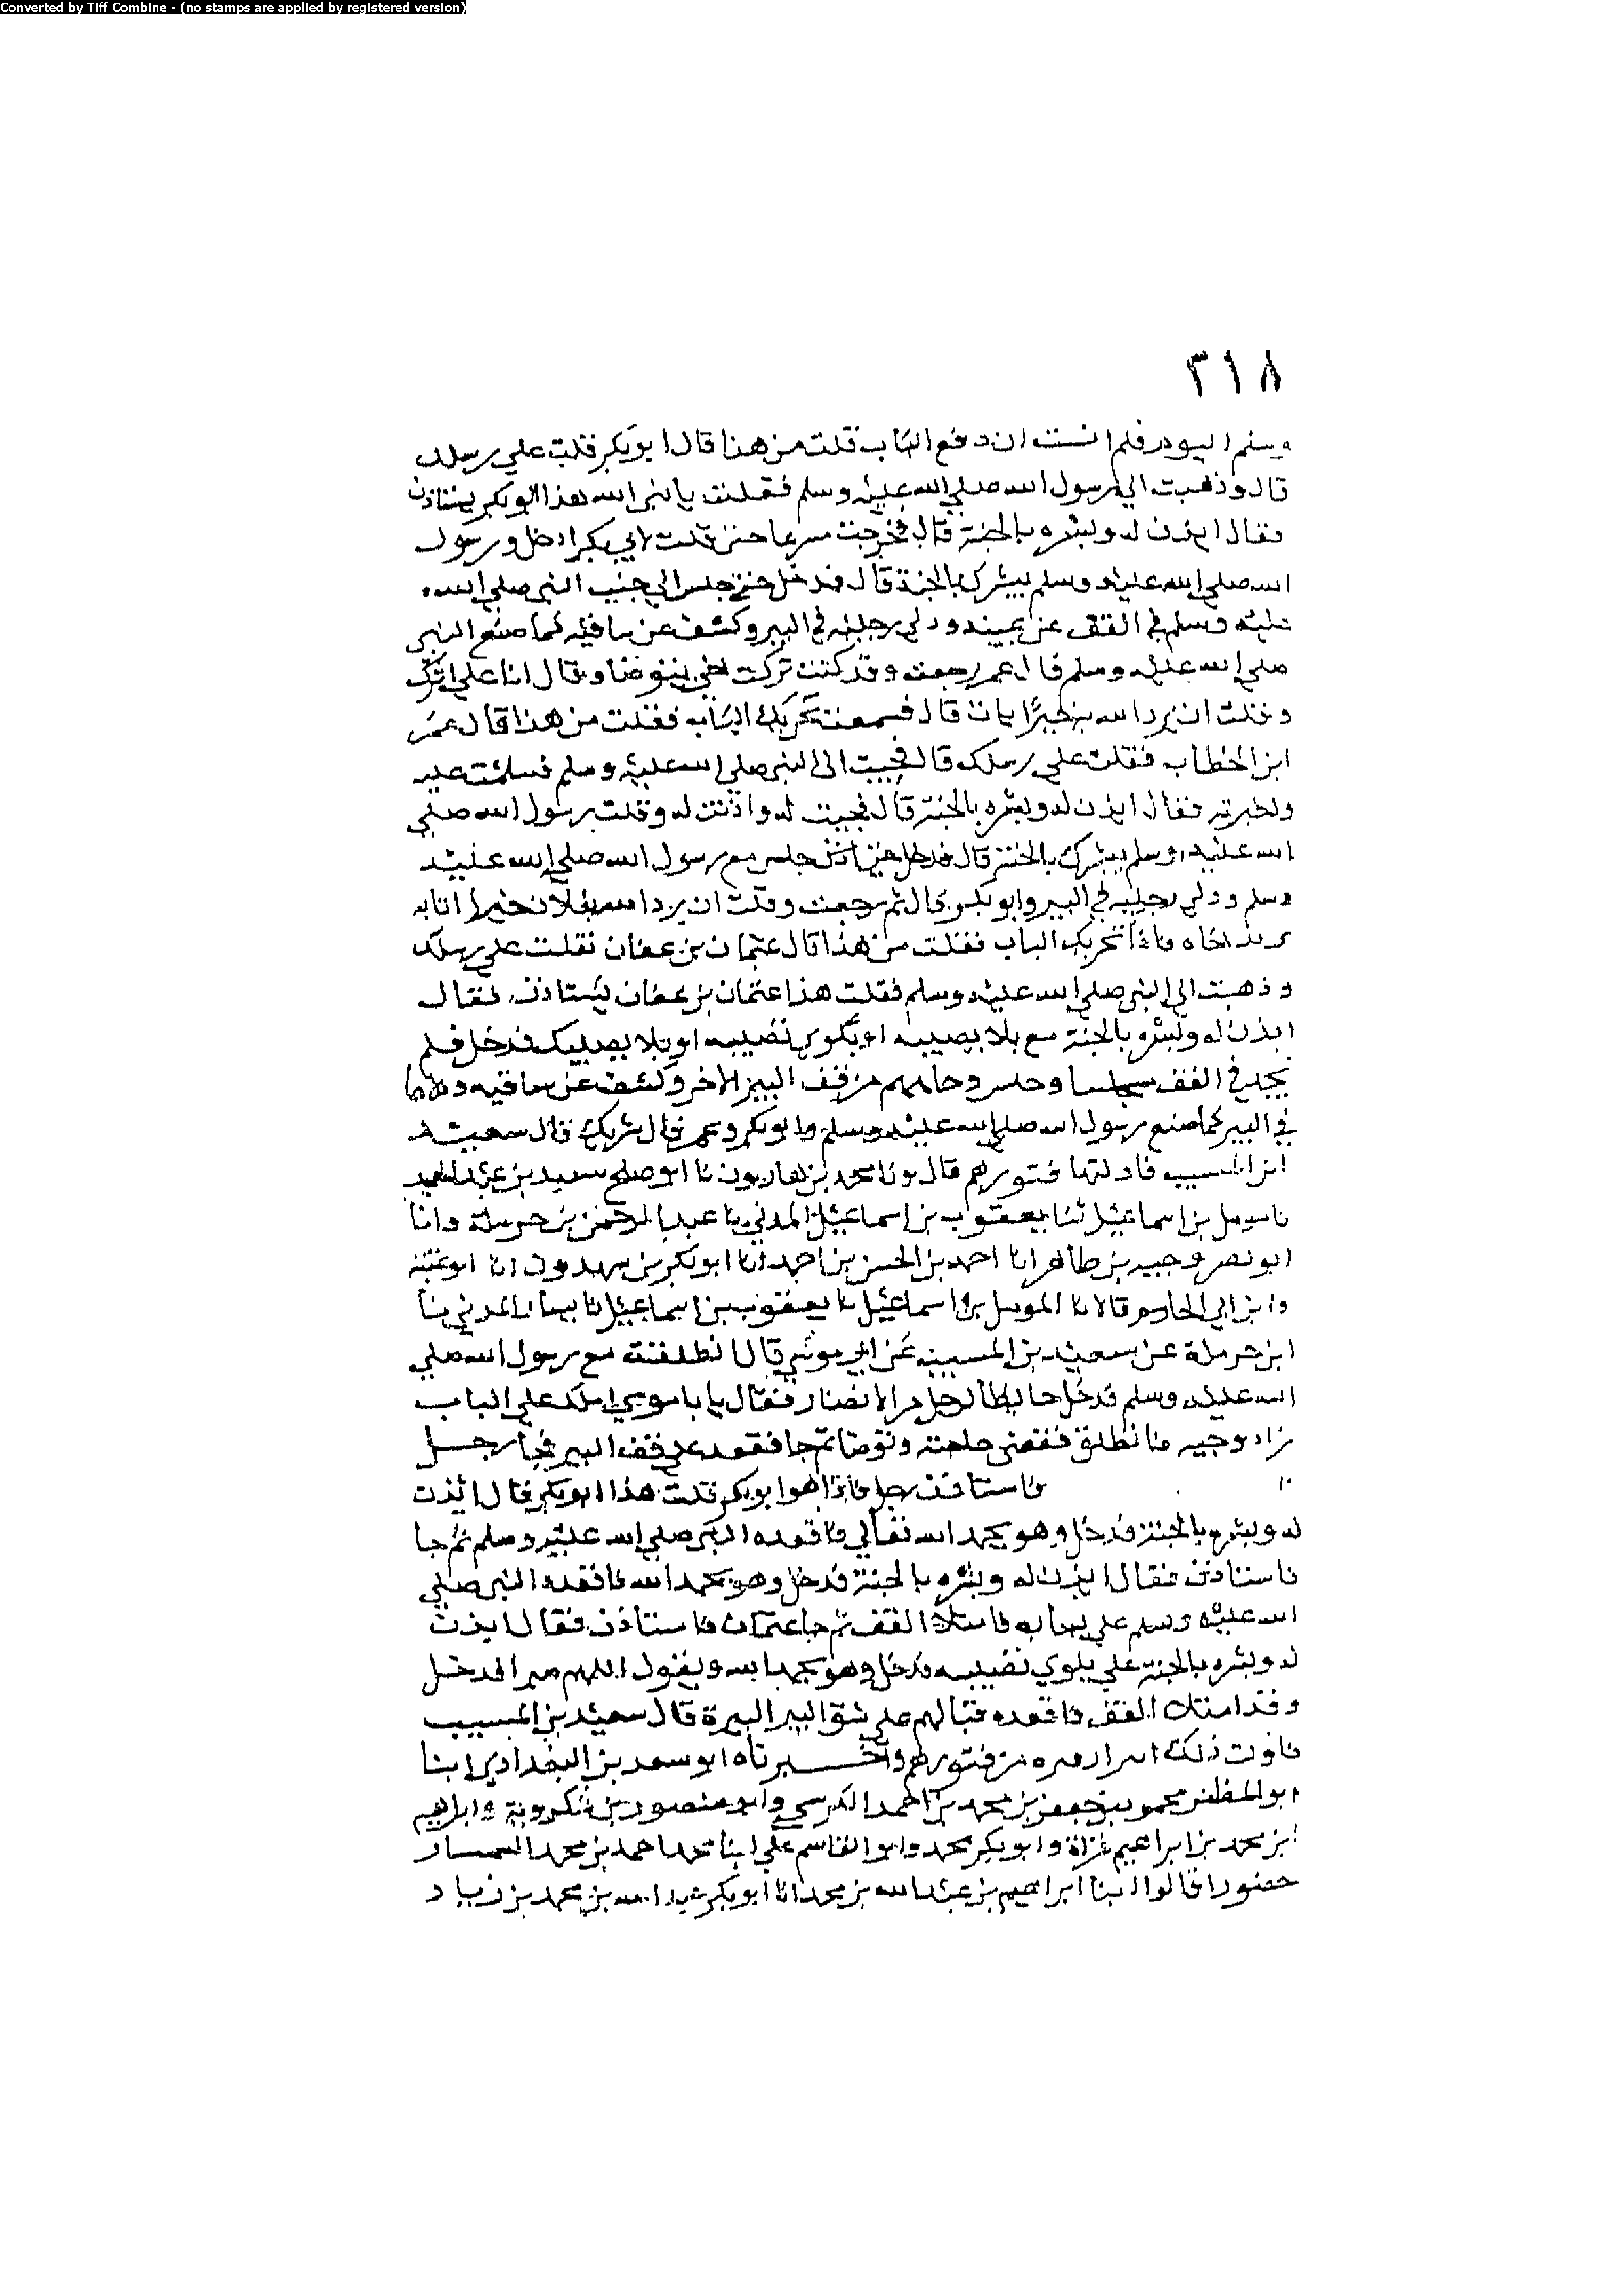 Converted by Tiff Combine - (no stamps are applied by registered version)
٣١٨
وسلم اليوم فلم انشب ان دفع الباب قلت من هذا قال ابو بكر قلت على رسلك
قال وذهبت الي رسول الله صلي الله عليه وسلم فقلت يا نبي الله هذا ابو بكر يستاذن
فقال ايذن له وبشره بالجنة قال فخرجت سرعا حتى قلت لابي بكر ادخل ورسول
الله صلي الله عليه وسلم يبشرك بالجنة قال فدخل حتى جلس الي جنب النبي صلي الله
عليه وسلم في القف عن يمينه ودلي رجليه في البير وكشف عن ساقيه كما صنع النبي
صلي الله عليه وسلم قال عمر رجعت وقد كنت تركت اخي يتوضا وقال انا على اثرك
وقلت ان يرد الله به خيرًا يات قال فسمعت تحريك الباب فقلت من هذا قال عمر
ابن الخطاب فقلت علي رسلك قال فجيت الى النبي صلي الله عليه وسلم فسلمت عليه
واخبرته فقال ايذن له وبشره بالجنة قال فجيت له واذنت له وقلت رسول الله صلي
الله عليه وسلم يبشرك بالجنة قال فدخل حتى جلس مع رسول الله صلي الله عليه
وسلم ودلي رجليه في البير وابو بكر قال ثم رجعت وقلت ان يرد الله بفلان خيرا اتا به
يريد اخاه فاذا تحريك الباب فقلت من هذا قال عثمان بن عفان فقلت علي رسلك
وذهبت الي النبي صلي الله عليه وسلم فقلت هذا عثمان بن عفان يستاذن فقال
ايذن له وبشره بالجنة مع بلا يصيبه او بلوى تصيبه او بلا يصيبك فدخل فلم
يجد في القف مجلسا وجلس وجاههم من قف البير الاخر وكشف عن ساقيه ودلاهما
في البير كما صنع رسول الله صلي الله عليه وسلم وابو بكر وعمر قال شريك قال سعيد
ابن المسيب فاولتها قبورهم قال ونا محمد بن هارون نا ابو صلح سعيد بن عبد الحميد
نا اسماعيل ثنا يعقوب بن اسماعيل المدني نا عبد الرحمن بن حرملة وانا
ابو نصر وجيه بن طاهر انا احمد بن الحسن بن احمد انا ابو بكر بن حمدون انا ابو عتبة
وابن ابي الحارم قالا نا المومل بن اسماعيل نا يعقوب بن اسماعيل نا المدني نا
ابن حرملة عن سعيد بن المسيب عن ابي موسي قال انطلقت مع رسول الله صلي
الله عليه وسلم فدخل حايطا لرجل من الانصار فقال يا با موسي املك علي الباب
زاد وجيه فانطلق فقضى حاجته وتوضا ثم جا فقعد علي قف البير فجا رجل
فاستاذن رجل فاذا هو ابو بكر قلت هذا ابو بكر قال ائذن
له وبشره بالجنة فدخل وهو يحمد الله تعالي فاقعده النبي صلي الله عليه وسلم ثم جا
فاستاذن فقال ايذن له وبشره بالجنة فدخل وهو يحمد الله فاقعده النبي صلي
الله عليه وسلم علي يساره فامتلا القف ثم جا عثمان فاستاذن فقال ايذن
له وبشره بالجنة علي بلوي تصيبه فدخل وهو يحمد الله ويقول اللهم صبرا فدخل
وقد امتلا القف فاقعده قبالهم علي شق البير قال سعيد بن المسيب
فاولت ذلك من قبورهم واخبرناه ابو سعد بن البغدادي انبا
ابو المظفر محمود بن جعفر بن محمد بن احمد الكوسج وابو منصور بن شكرويه وابراهيم
ابن محمد بن ابراهيم وابو بكر محمد وابو القاسم علي ابنا احمد بن محمد السمسار
حضورا قالوا انبا ابراهيم بن عبد الله بن محمد انا ابو بكر عبد الله بن محمد بن زياد